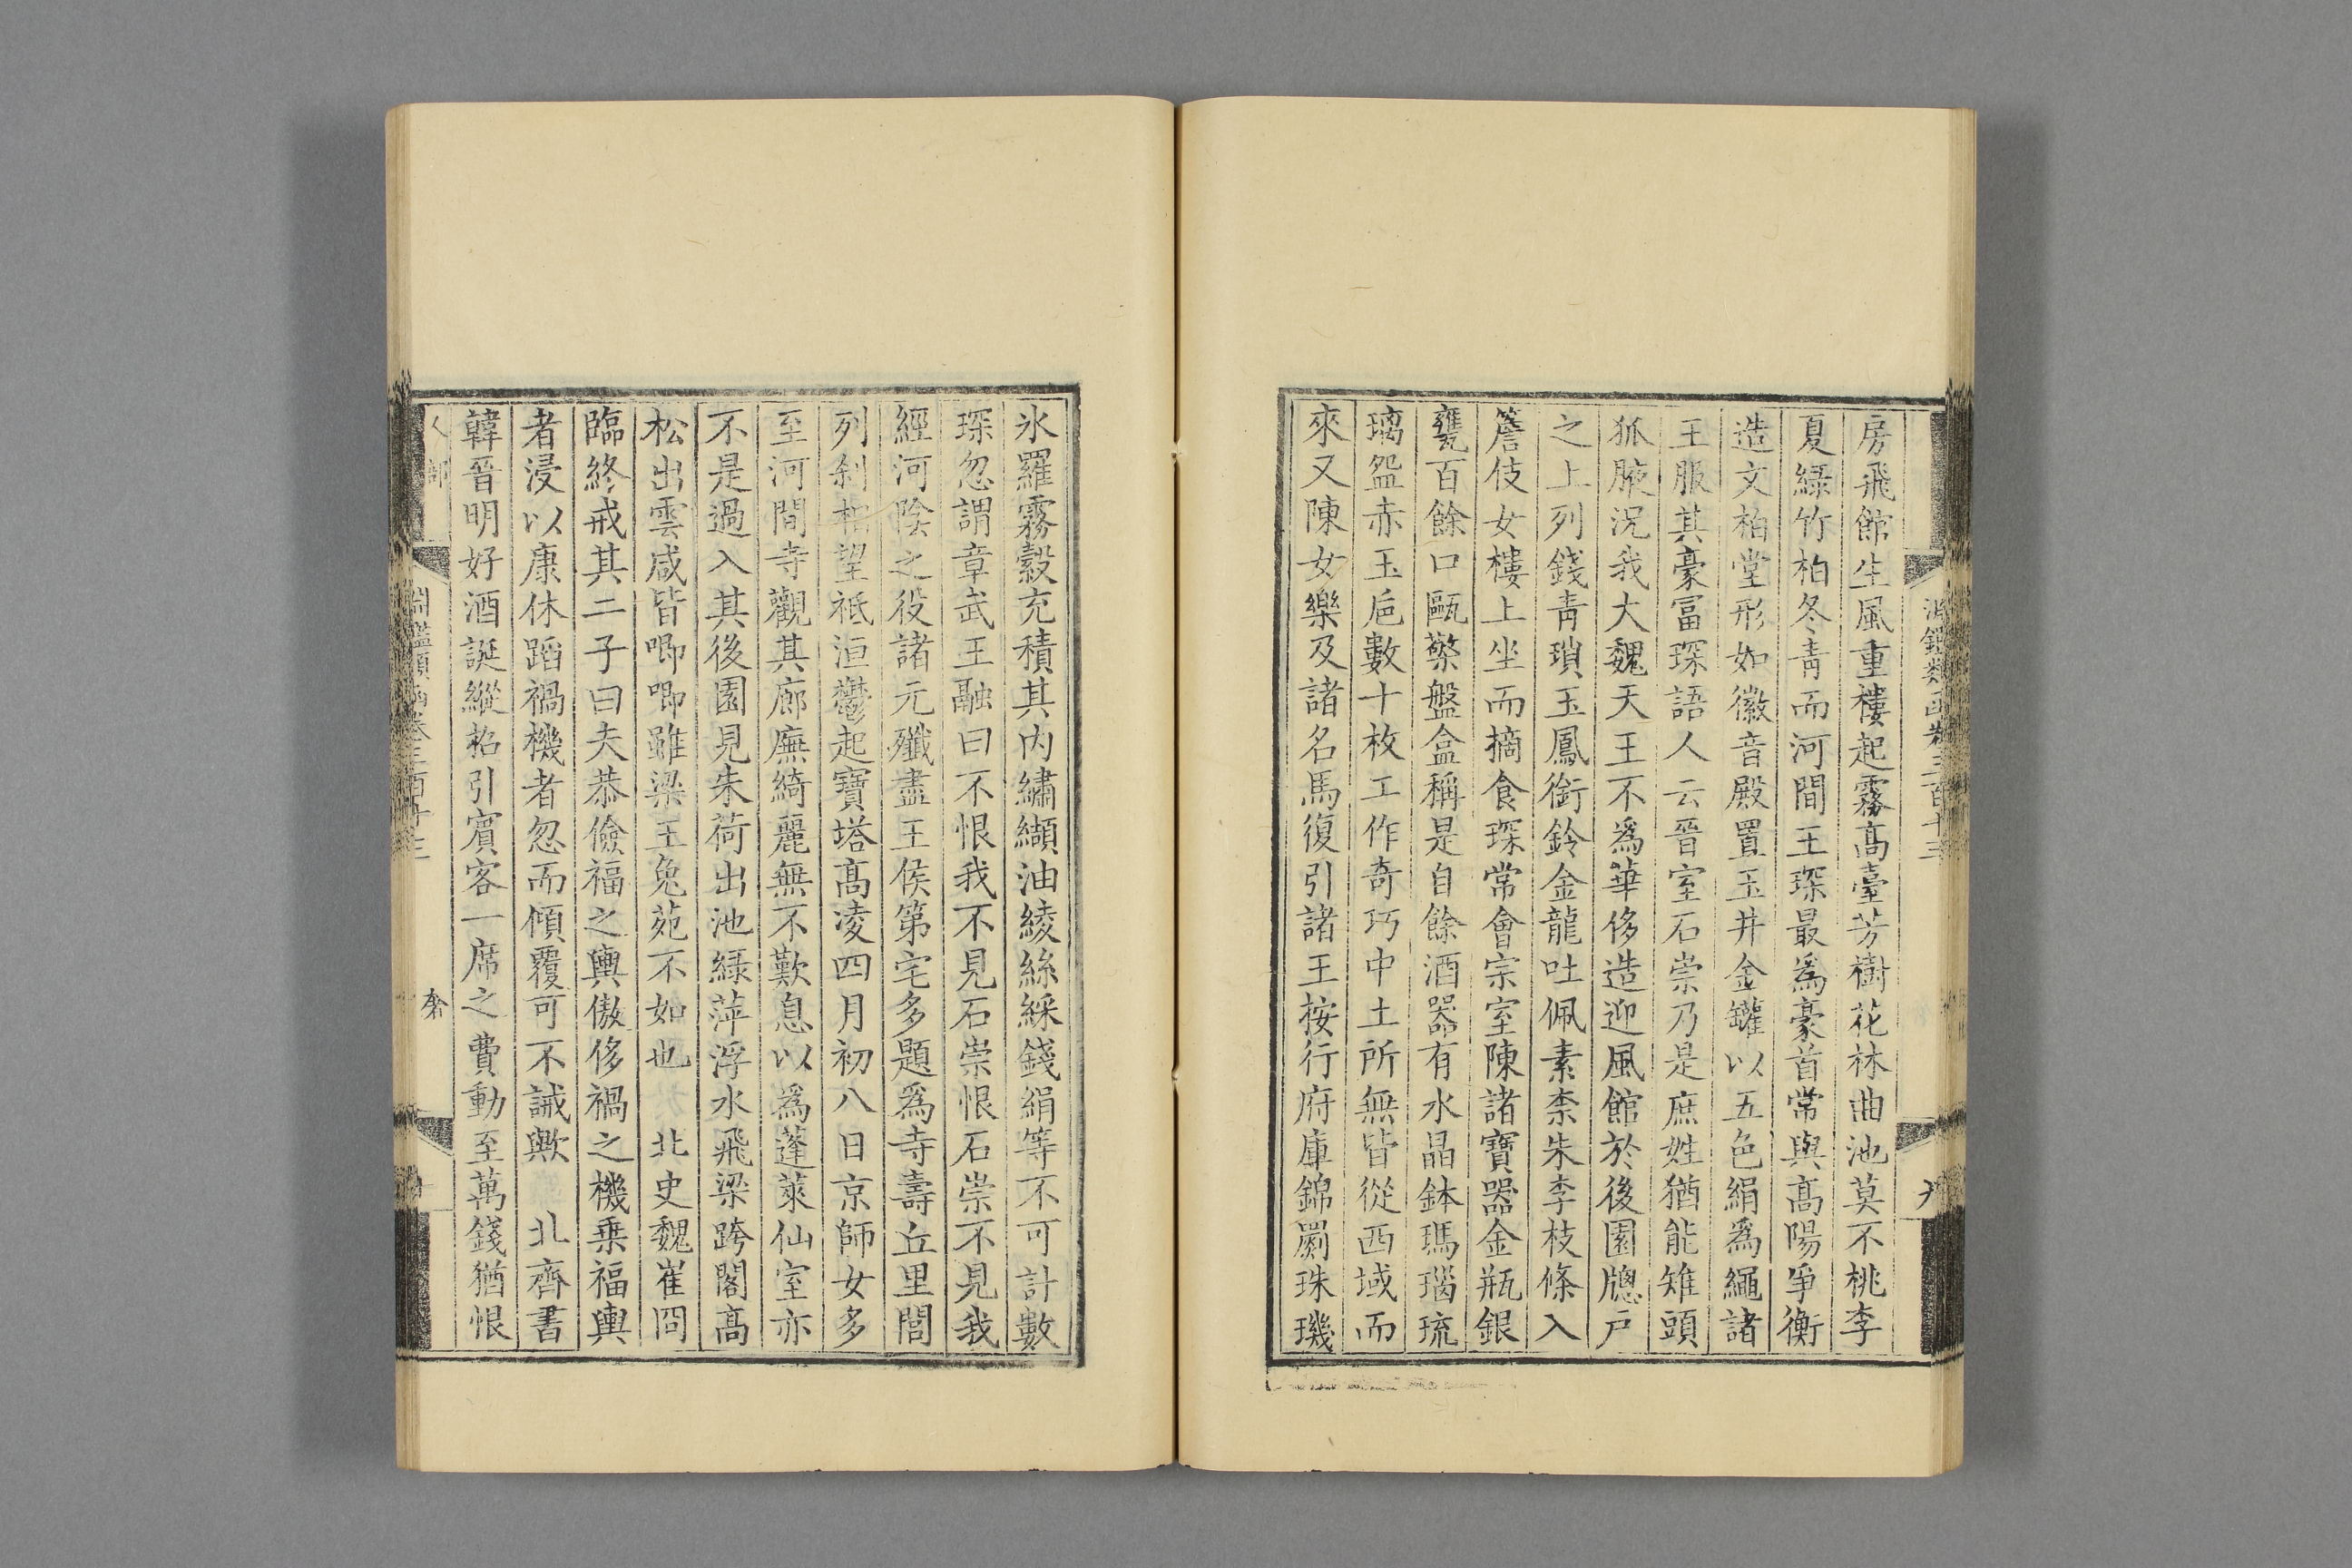 淵鑑類函卷三百十三
房飛館生風重樓起霧高臺芳樹花林曲池莫不桃李
夏綠竹柏冬青而河間王琛最爲豪首常與高陽爭衡
造文柏堂形如徽音殿置玉井金罐以五色絹爲繩諸
王服其豪富琛語人云晉室石崇乃是庶姓猶能雉頭
狐腋況我大魏天王不爲華侈造迎風館於後園牕戶
之上列錢青瑣玉鳳銜鈴金龍吐佩素柰朱李枝條入
簷伎女樓上坐而摘食琛常會宗室陳諸寶器金瓶銀
甕百餘口甌檠盤盒稱是自餘酒器有水晶鉢瑪瑙琉
璃盌赤玉巵數十枚工作奇巧中土所無皆從西域而
來又陳女樂及諸名馬復引諸王按行府庫錦罽珠璣
氷羅霧縠充積其內繡纈油綾絲綵錢絹等不可計數
琛忽謂章武王融曰不恨我不見石崇恨石崇不見我
經河陰之役諸元殲盡王侯第宅多題爲寺壽丘里閭
列刹相望祗洹鬱起寶塔高凌四月初八日京師女多
至河間寺觀其廊廡綺麗無不歎息以爲蓬萊仙室亦
不是過入其後園見朱荷出池綠萍浮水飛梁跨閣高
松出雲咸皆唧唧雖梁王兔苑不如也 北史魏崔冏
臨終戒其二子曰夫恭儉福之輿傲侈禍之機乗福輿
者浸以康休蹈禍機者忽而傾覆可不誡歟 北齊書
韓晉明好酒誕縱招引賓客一席之費動至萬錢猶恨
人部
淵鑑類函卷三百十三
奢